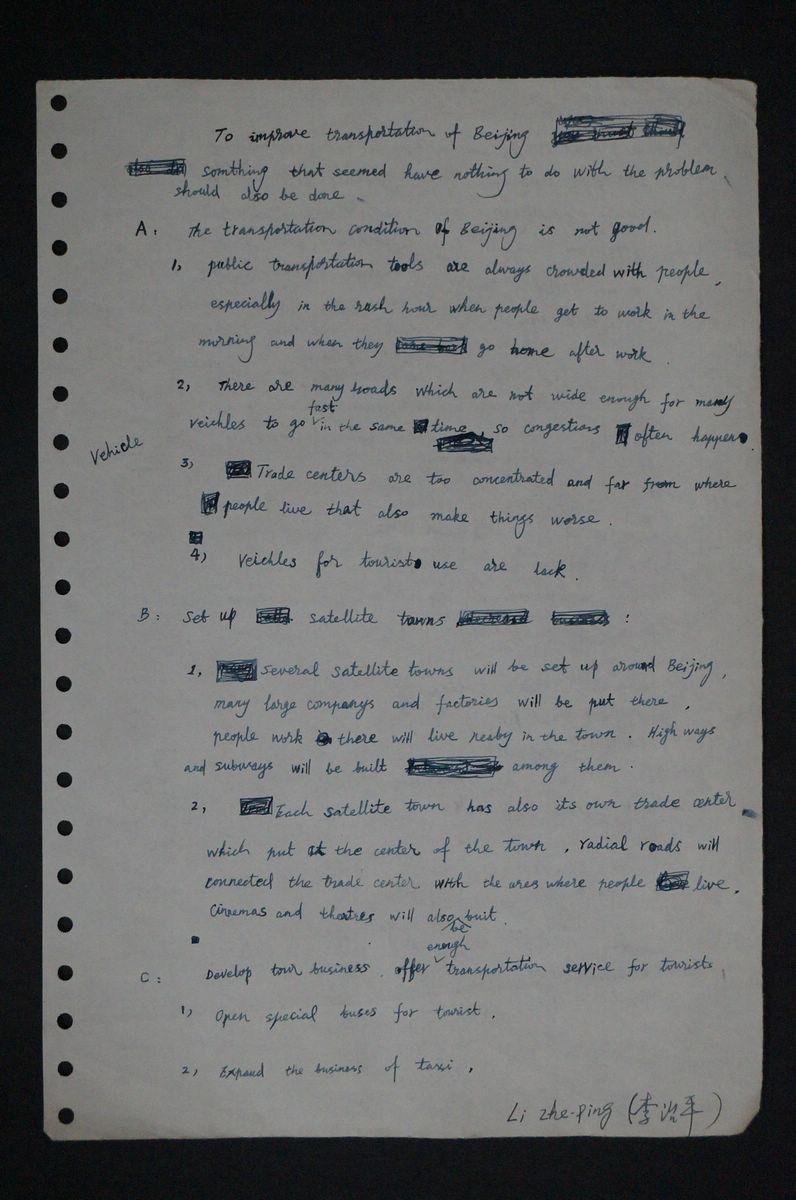 To improve transportation of Beijing
somthing that seemed have nothing to do with the problem
should also be done.
A: The transportation condition of Beijing is not good.
1, public transportation tools are always crowded with people,
especially in the rush hour when people get to work in the
morning and when they go home after work.
2, There are many roads which are not wide enough for many
fast
veichles to go in the same time, so congestions often happen.
Vehicle
3, Trade centers are too concentrated and far from where
people live that also make things worse.
4, Veichles for tourist use are lack.
B: Set up satellite towns :
1, Several satellite towns will be set up around Beijing,
many large companys and factories will be put there,
people work there will live nearby in the town. High ways
and subways will be built among them.
2, Each satellite town has also its own trade center
which put at the center of the town, radial roads will
connected the trade center with the area where people live.
Cinemas and theatres will also buit.
be
enough
C: Develop tour business, offer transportation service for tourists
1, Open special buses for tourist,
2, Expand the business of taxi,
Li Zhe-ping (李 平)